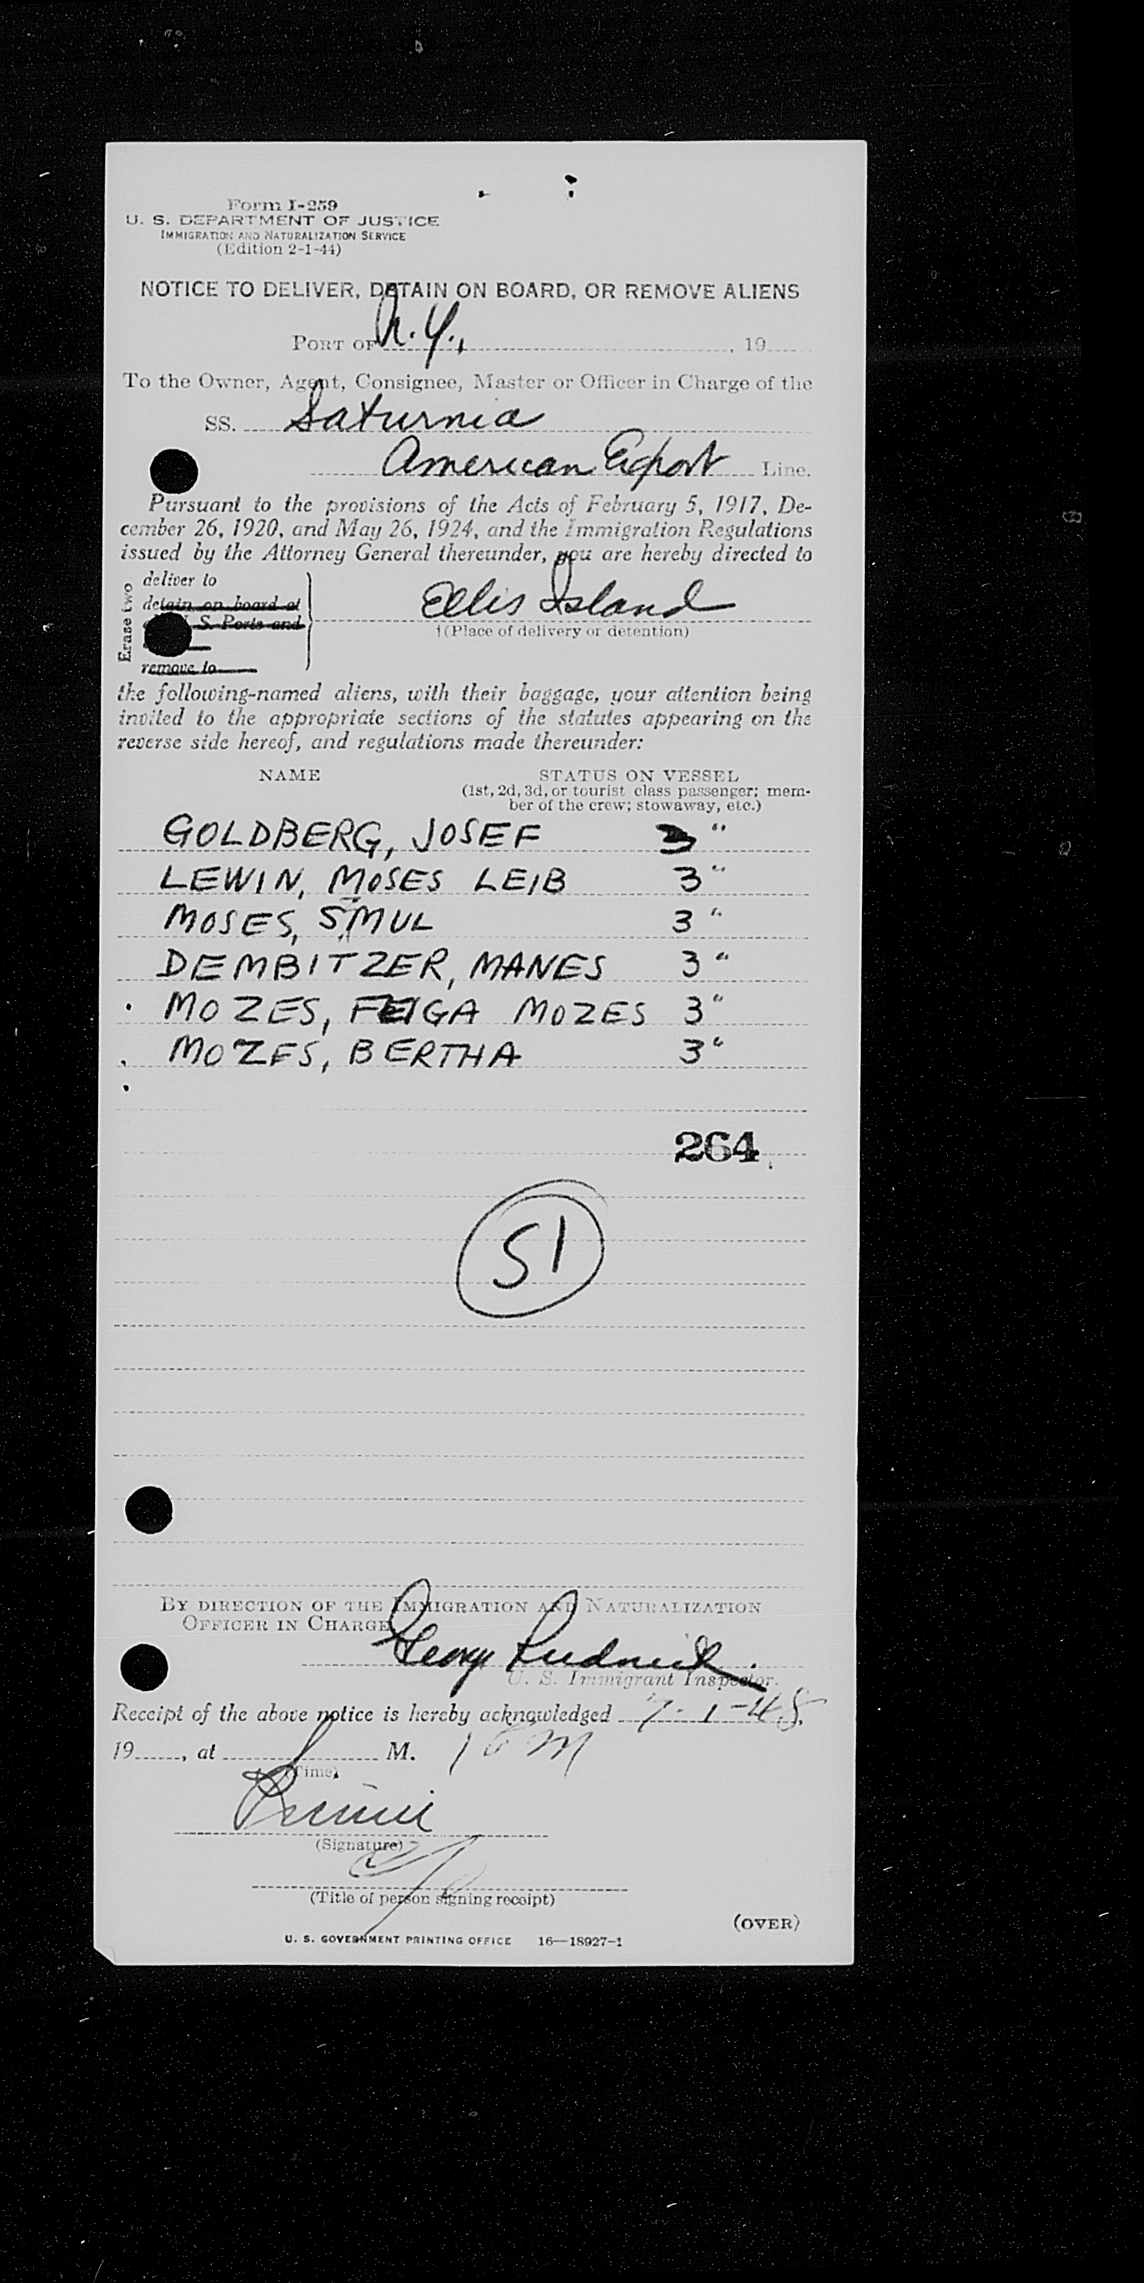 Form I-259
U. S. DEPARTMENT OF JUSTICE
IMMIGRATION AND NATURALIZATION SERVICE
(Edition 2-1-44)
NOTICE TO DELIVER, DETAIN ON BOARD, OR REMOVE ALIENS
PORT OF N.Y., , 19
To the Owner, Agent, Consignee, Master or Officer in Charge of the
SS. Saturnia
American Export Line.
Pursuant to the provisions of the Acts of February 5, 1917, De-
cember 26, 1920, and May 26, 1924, and the Immigration Regulations
issued by the Attorney General thereunder, you are hereby directed to
Erase two
deliver to
detain on board at
S. Ports and
remove to
Ellis Island
†(Place of delivery or detention)
the following-named aliens, with their baggage, your attention being
invited to the appropriate sections of the statutes appearing on the
reverse side hereof, and regulations made thereunder:
NAME STATUS ON VESSEL
(1st, 2d, 3d, or tourist class passenger; mem-
ber of the crew; stowaway, etc.)
GOLDBERG, JOSEF 3 "
LEWIN, MOSES LEIB 3 "
MOSES, SMUL 3 "
DEMBITZER, MANES 3 "
MOZES, FEIGA MOZES 3 "
MOZES, BERTHA 3 "
264
51
BY DIRECTION OF THE IMMIGRATION AND NATURALIZATION
OFFICER IN CHARGE
George Rudnick
U. S. Immigrant Inspector.
Receipt of the above notice is hereby acknowledged 7-1-48,
19 , at M.
(Time)
(Signature)
(Title of person signing receipt)
(OVER)
U. S. GOVERNMENT PRINTING OFFICE 16—18927-1